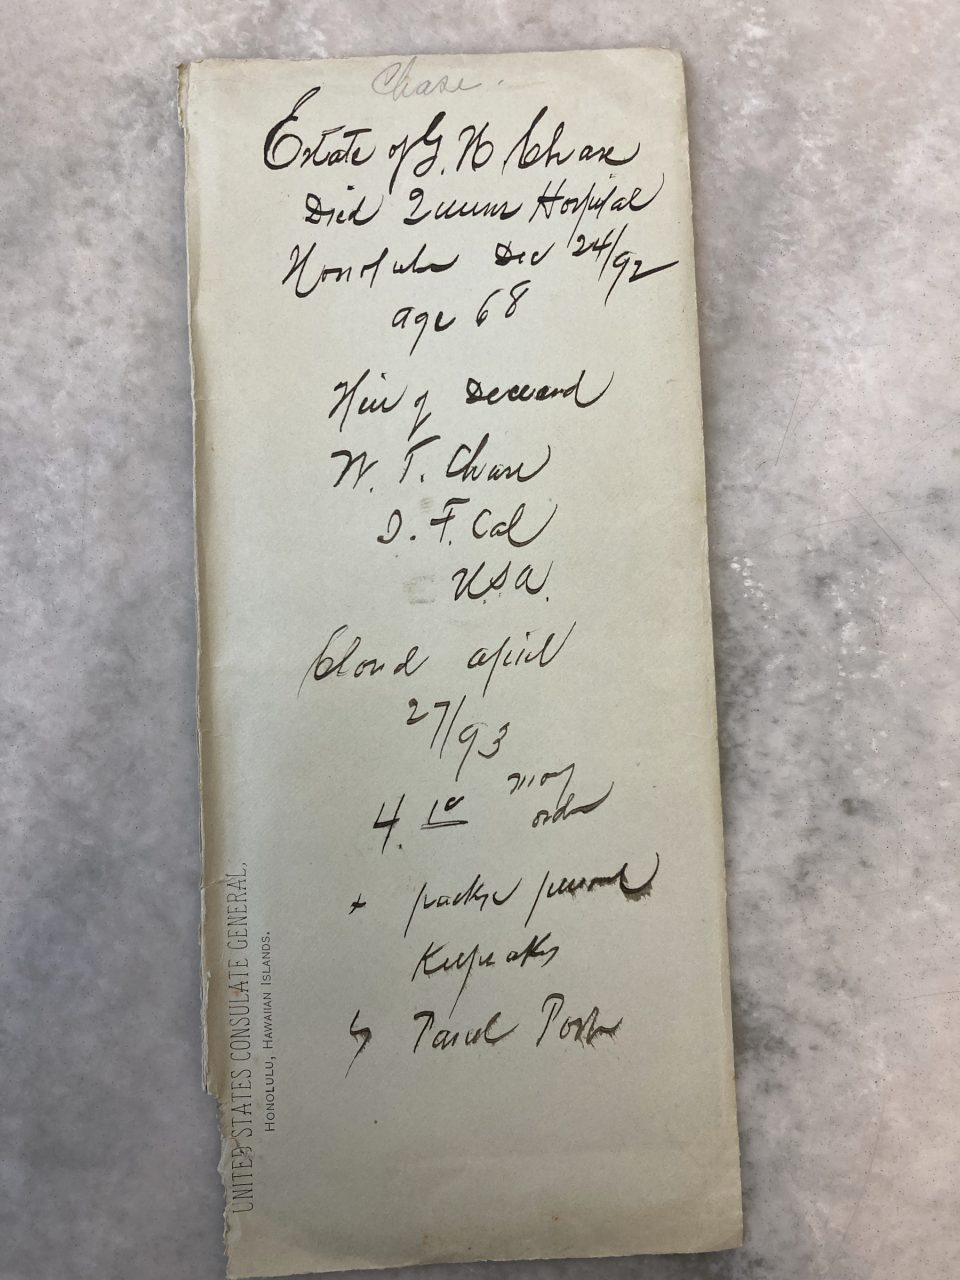 Chase.
Estate of G. W Chase
Died Queens Hospital
Honolulu Dec 24/92
age 68
Heir of Deceased
W. T. Chase
S. F. Cal
U.S.A.
Closed April
27/93
4. 10 moy
order
+ packge personal
Keepsakes
by Parcel Post
UNITED STATES CONSULATE GENERAL,
HONOLULU, HAWAIIAN ISLANDS.